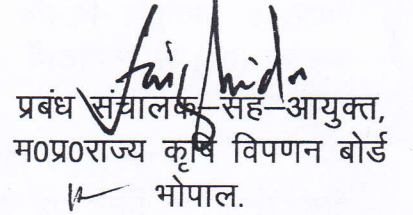 प्रबंध संचालक–सह–आयुक्त,
म0प्र0राज्य कृषि विपणन बोर्ड
भोपाल.